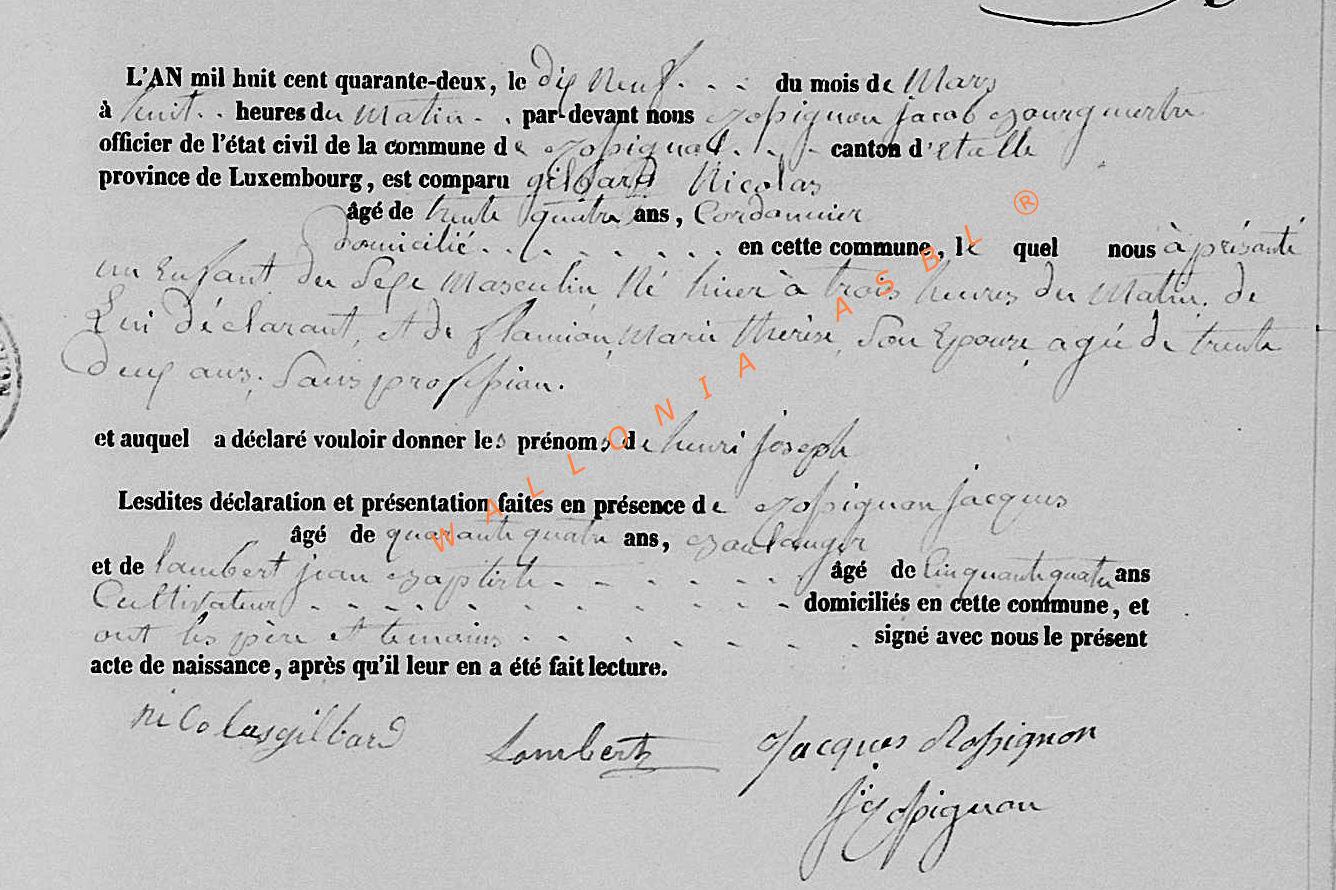 L'AN mil huit cent quarante-deux, le dix neuf du mois de Mars
à huit heures du Matin par-devant nous Rossignon jacob Bourguemetre
officier de l'état civil de la commune de Rossignol canton d'Etalle
province de Luxembourg, est comparu gilbard Nicolas
âgé de trente quatre ans, Cordonnier
domicilié en cette commune, le quel nous à présenté
un Enfant du Sexe Masculin Né hiier à trois heures du Matin. de
Lui déclarant, et de flamion, Marie thérèse, Son Epouse, agée de trente
Deux ans. Sans profession.
et auquel a déclaré vouloir donner les prénoms de henri joseph
Lesdites déclaration et présentation faites en présence de Rossignon jacques
âgé de quarante quatre ans, Boulanger
et de lambert jean Baptiste âgé de Cinquante quatre ans
Cultivateur domiciliés en cette commune, et
ont les père et temoins signé avec nous le présent
acte de naissance, après qu'il leur en a été fait lecture.
nicolas gilbard Lambert Jacques Rossignon
J Rossignon
WALLONIA ASBL ®